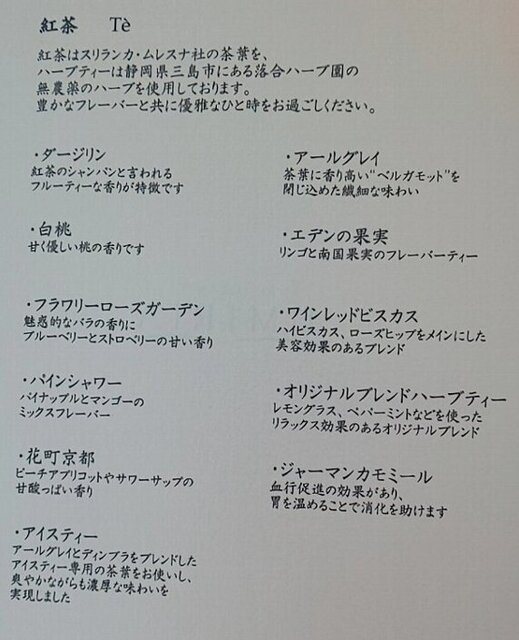 紅茶 Tè
紅茶はスリランカ・ムレスナ社の茶葉を、
ハーブティーは静岡県三島市にある落合ハーブ園の
無農薬のハーブを使用しております。
豊かなフレーバーと共に優雅なひと時をお過ごしください。
・ダージリン
紅茶のシャンパンと言われる
フルーティーな香りが特徴です
・白桃
甘く優しい桃の香りです
・フラワリーローズガーデン
魅惑的なバラの香りに
ブルーベリーとストロベリーの甘い香り
・パインシャワー
パイナップルとマンゴーの
ミックスフレーバー
・花町京都
ピーチアプリコットやサワーサップの
甘酸っぱい香り
・アイスティー
アールグレイとディンブラをブレンドした
アイスティー専用の茶葉をお使いし、
爽やかながらも濃厚な味わいを
実現しました
・アールグレイ
茶葉に香り高い"ベルガモット"を
閉じ込めた繊細な味わい
・エデンの果実
リンゴと南国果実のフレーバーティー
・ワインレッドビスカス
ハイビスカス、ローズヒップをメインにした
美容効果のあるブレンド
・オリジナルブレンドハーブティー
レモングラス、ペパーミントなどを使った
リラックス効果のあるオリジナルブレンド
・ジャーマンカモミール
血行促進の効果があり、
胃を温めることで消化を助けます